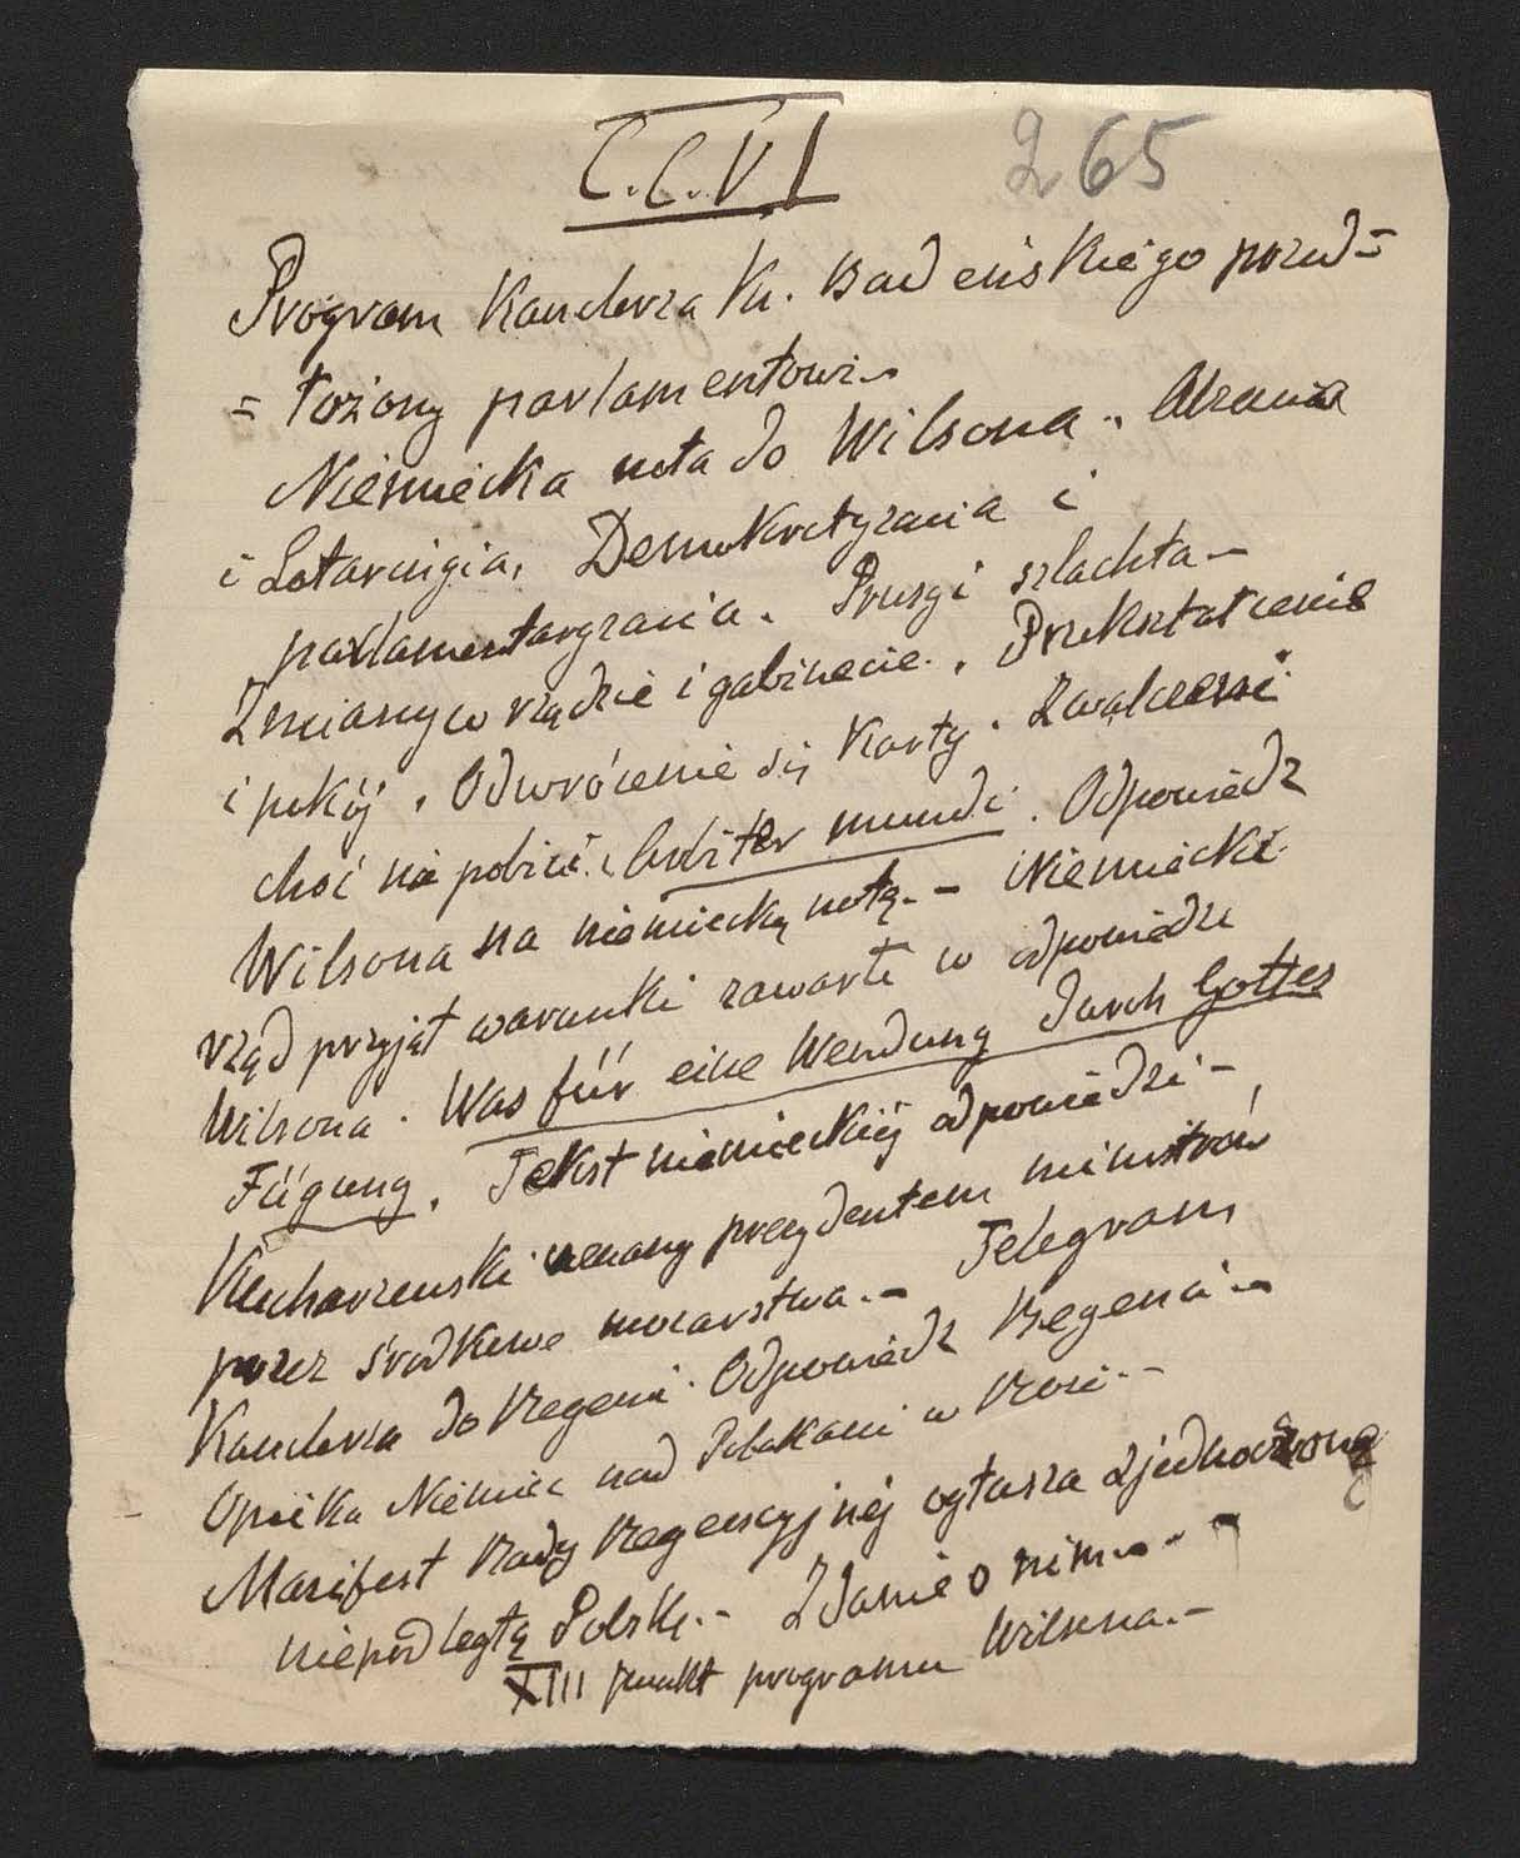 C.C.VI
265
Program Kanclerza Ks. Badeńskiego przed=
=łożony parlamentowi.-
Niemiecka nota do Wilsona.. Alzacia
i Lotaryngia. Demokratyzacia i
parlamentaryzacia. Prusy i szlachta-
Zmiany w rządzie i gabinecie.. Przekształcenie
i pokój. Odwrócenie się karty. Zwalczeni
choć nie pobici. Arbiter mundi. Odpowiedz
Wilsona na niemiecką notę.- Niemiecki
rząd przyjął warunki zawarte w odpowiedzi
Wilsona. Was für eine Wendung durch Gottes
Fügung. Tekst niemieckiej odpowiedzi-
Kucharzewski uznany prezydentem ministrów
przez środkowe mocarstwa.- Telegram
Kanclerza do Regencii. Odpowiedz Regencii.-
Opieka Niemiec nad Polakami w Rosii.-
Manifest Rady Regencyjnej ogłasza zjednoczoną
niepodległą Polskę.- Zdanie o nim.-
XIII punkt programu Wilsona.-